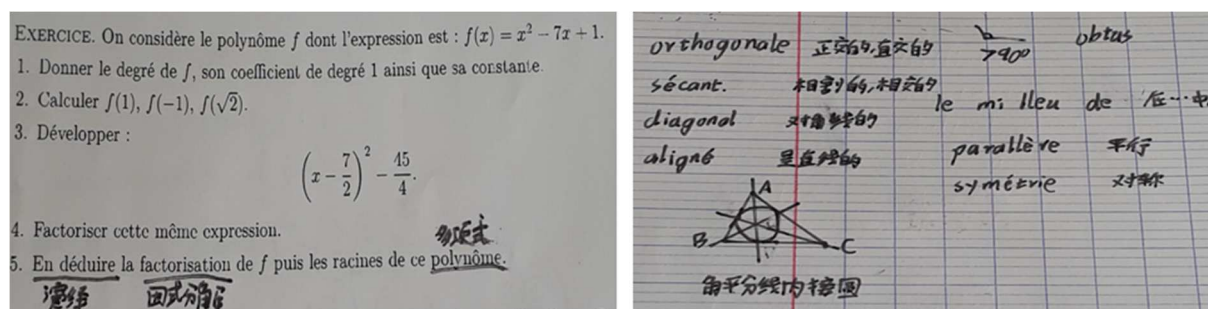 EXERCICE. On considère le polynôme f dont l'expression est : f(x) = x² − 7x + 1.
1. Donner le degré de f, son coefficient de degré 1 ainsi que sa constante.
2. Calculer f(1), f(−1), f(√2).
3. Développer :
(x − 7/2)² − 45/4.
4. Factoriser cette même expression.
多项式
5. En déduire la factorisation de f puis les racines de ce polynôme.
因式分解
orthogonale 正交的,直交的 >90° obtus
sécant. 相割的,相交的
le milieu de 在…中
diagonal 对角线的
parallève 平行
aligné 呈直线的
symétrie 对称
A
B C
角平分线内接圆